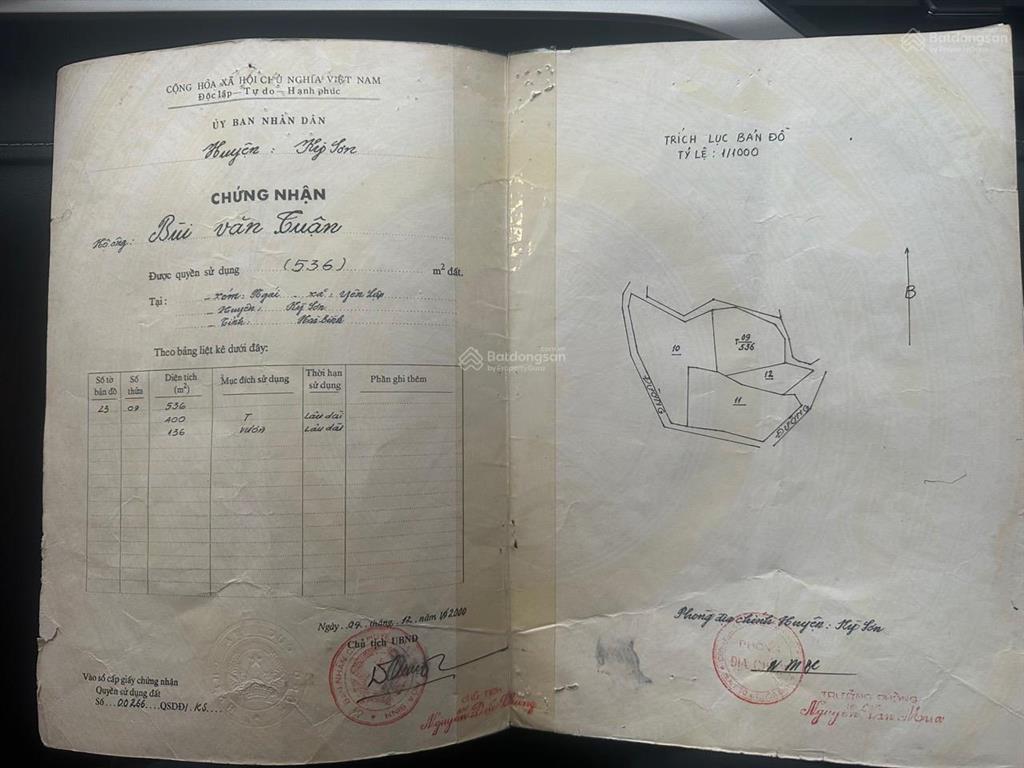 CỘNG HÒA XÃ HỘI CHỦ NGHĨA VIỆT NAM
Độc lập - Tự do - Hạnh phúc
ỦY BAN NHÂN DÂN
Huyện: Kỳ Sơn
CHỨNG NHẬN
Hộ ông: Bùi văn Tuận
Được quyền sử dụng (536) m² đất.
Tại: - xóm: Ngái - xã: Yên Lập
- Huyện: Kỳ Sơn
- Tỉnh:
Theo bảng liệt kê dưới đây:
Số tờ bản đồ Số thửa Diện tích (m²) Mục đích sử dụng Thời hạn sử dụng Phần ghi thêm
23 09 536
400 T Lâu dài
136 Vườn Lâu dài
Ngày 09 tháng 12 năm 2000
Chủ tịch UBND
CHỦ TỊCH
Nguyễn Đức
Vào sổ cấp giấy chứng nhận
Quyền sử dụng đất
Số 00266 QSDĐ/KS
TRÍCH LỤC BẢN ĐỒ
TỶ LỆ: 1/1000
B
10
T 09
536
12
11
ĐƯỜNG
ĐƯỜNG
Phòng Địa chính Huyện: Kỳ Sơn
PHÒNG
ĐỊA CHÍNH
TRƯỞNG PHÒNG
Nguyễn Văn Mưa
Batdongsan
by PropertyGuru
Batdongsan
by PropertyGuru
Batdongsan
by PropertyGuru